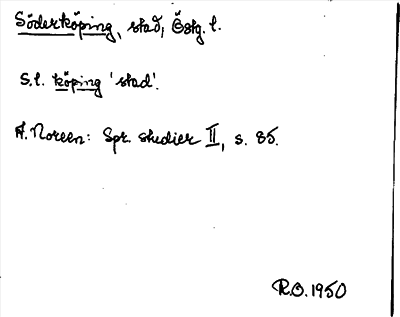 Söderköping, stad, Östg. l.
S.l. köping 'stad'.
A. Noreen: Spr. studier II, s. 85.
R.O. 1950